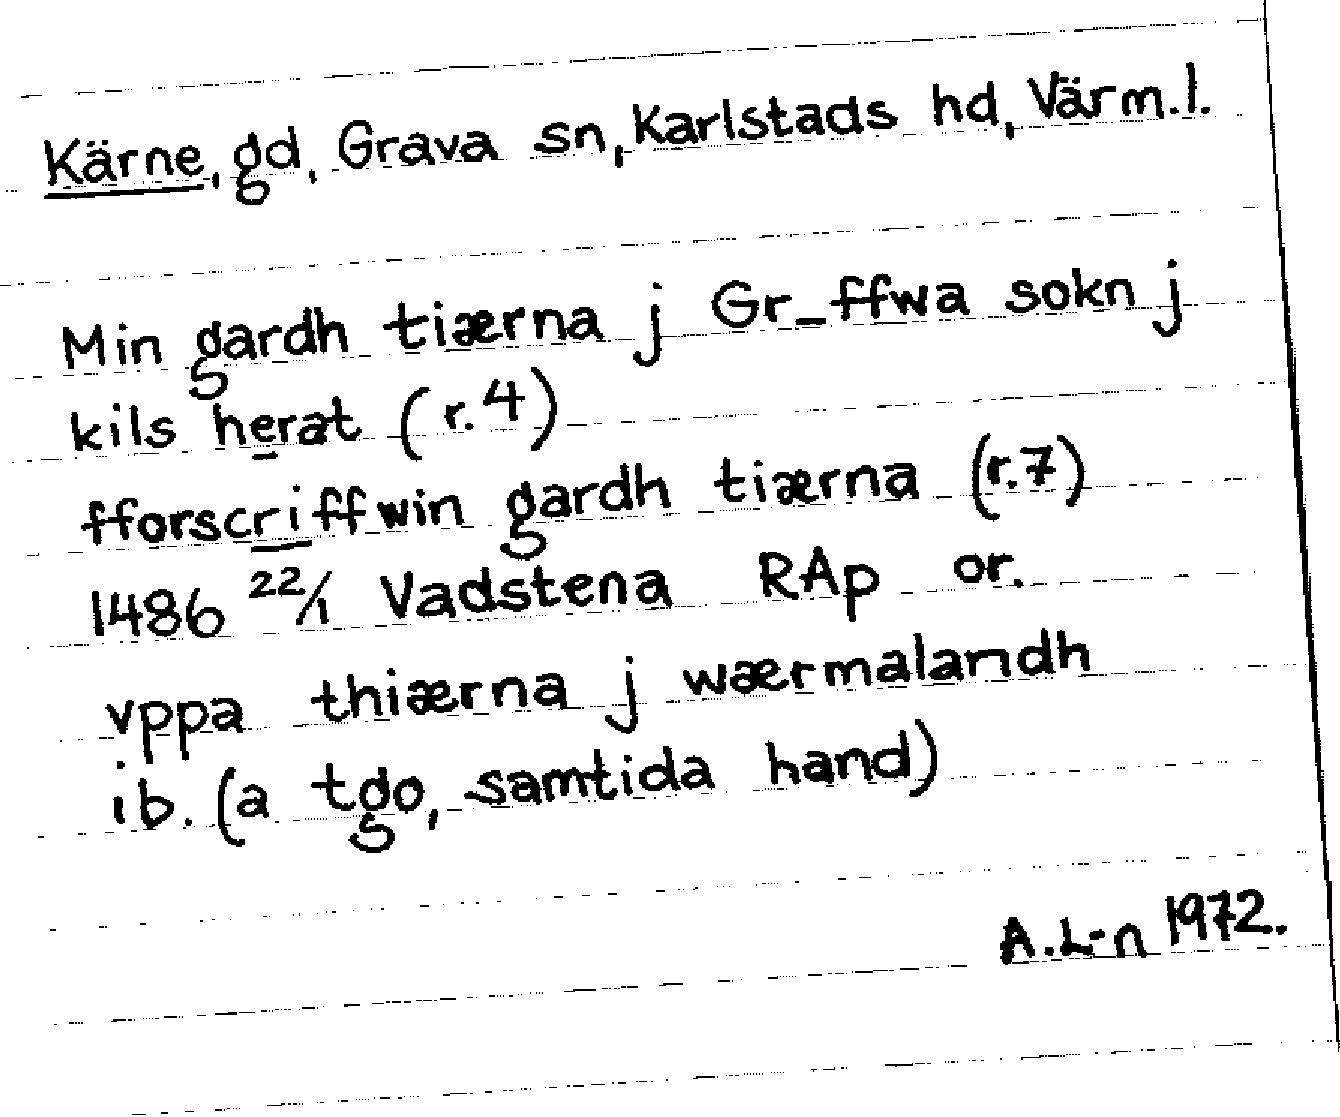 Kärne, gd, Grava sn, Karlstads hd, Värm.l.
Min gardh tiærna j Gr_ffwa sokn j
kils herat (r.4)
fforscriffwin gardh tiærna (r.7)
1486 22/1 Vadstena RAp or.
vppa thiærna j wærmalandh
ib. (a tgo, samtida hand)
A.L-n 1972.